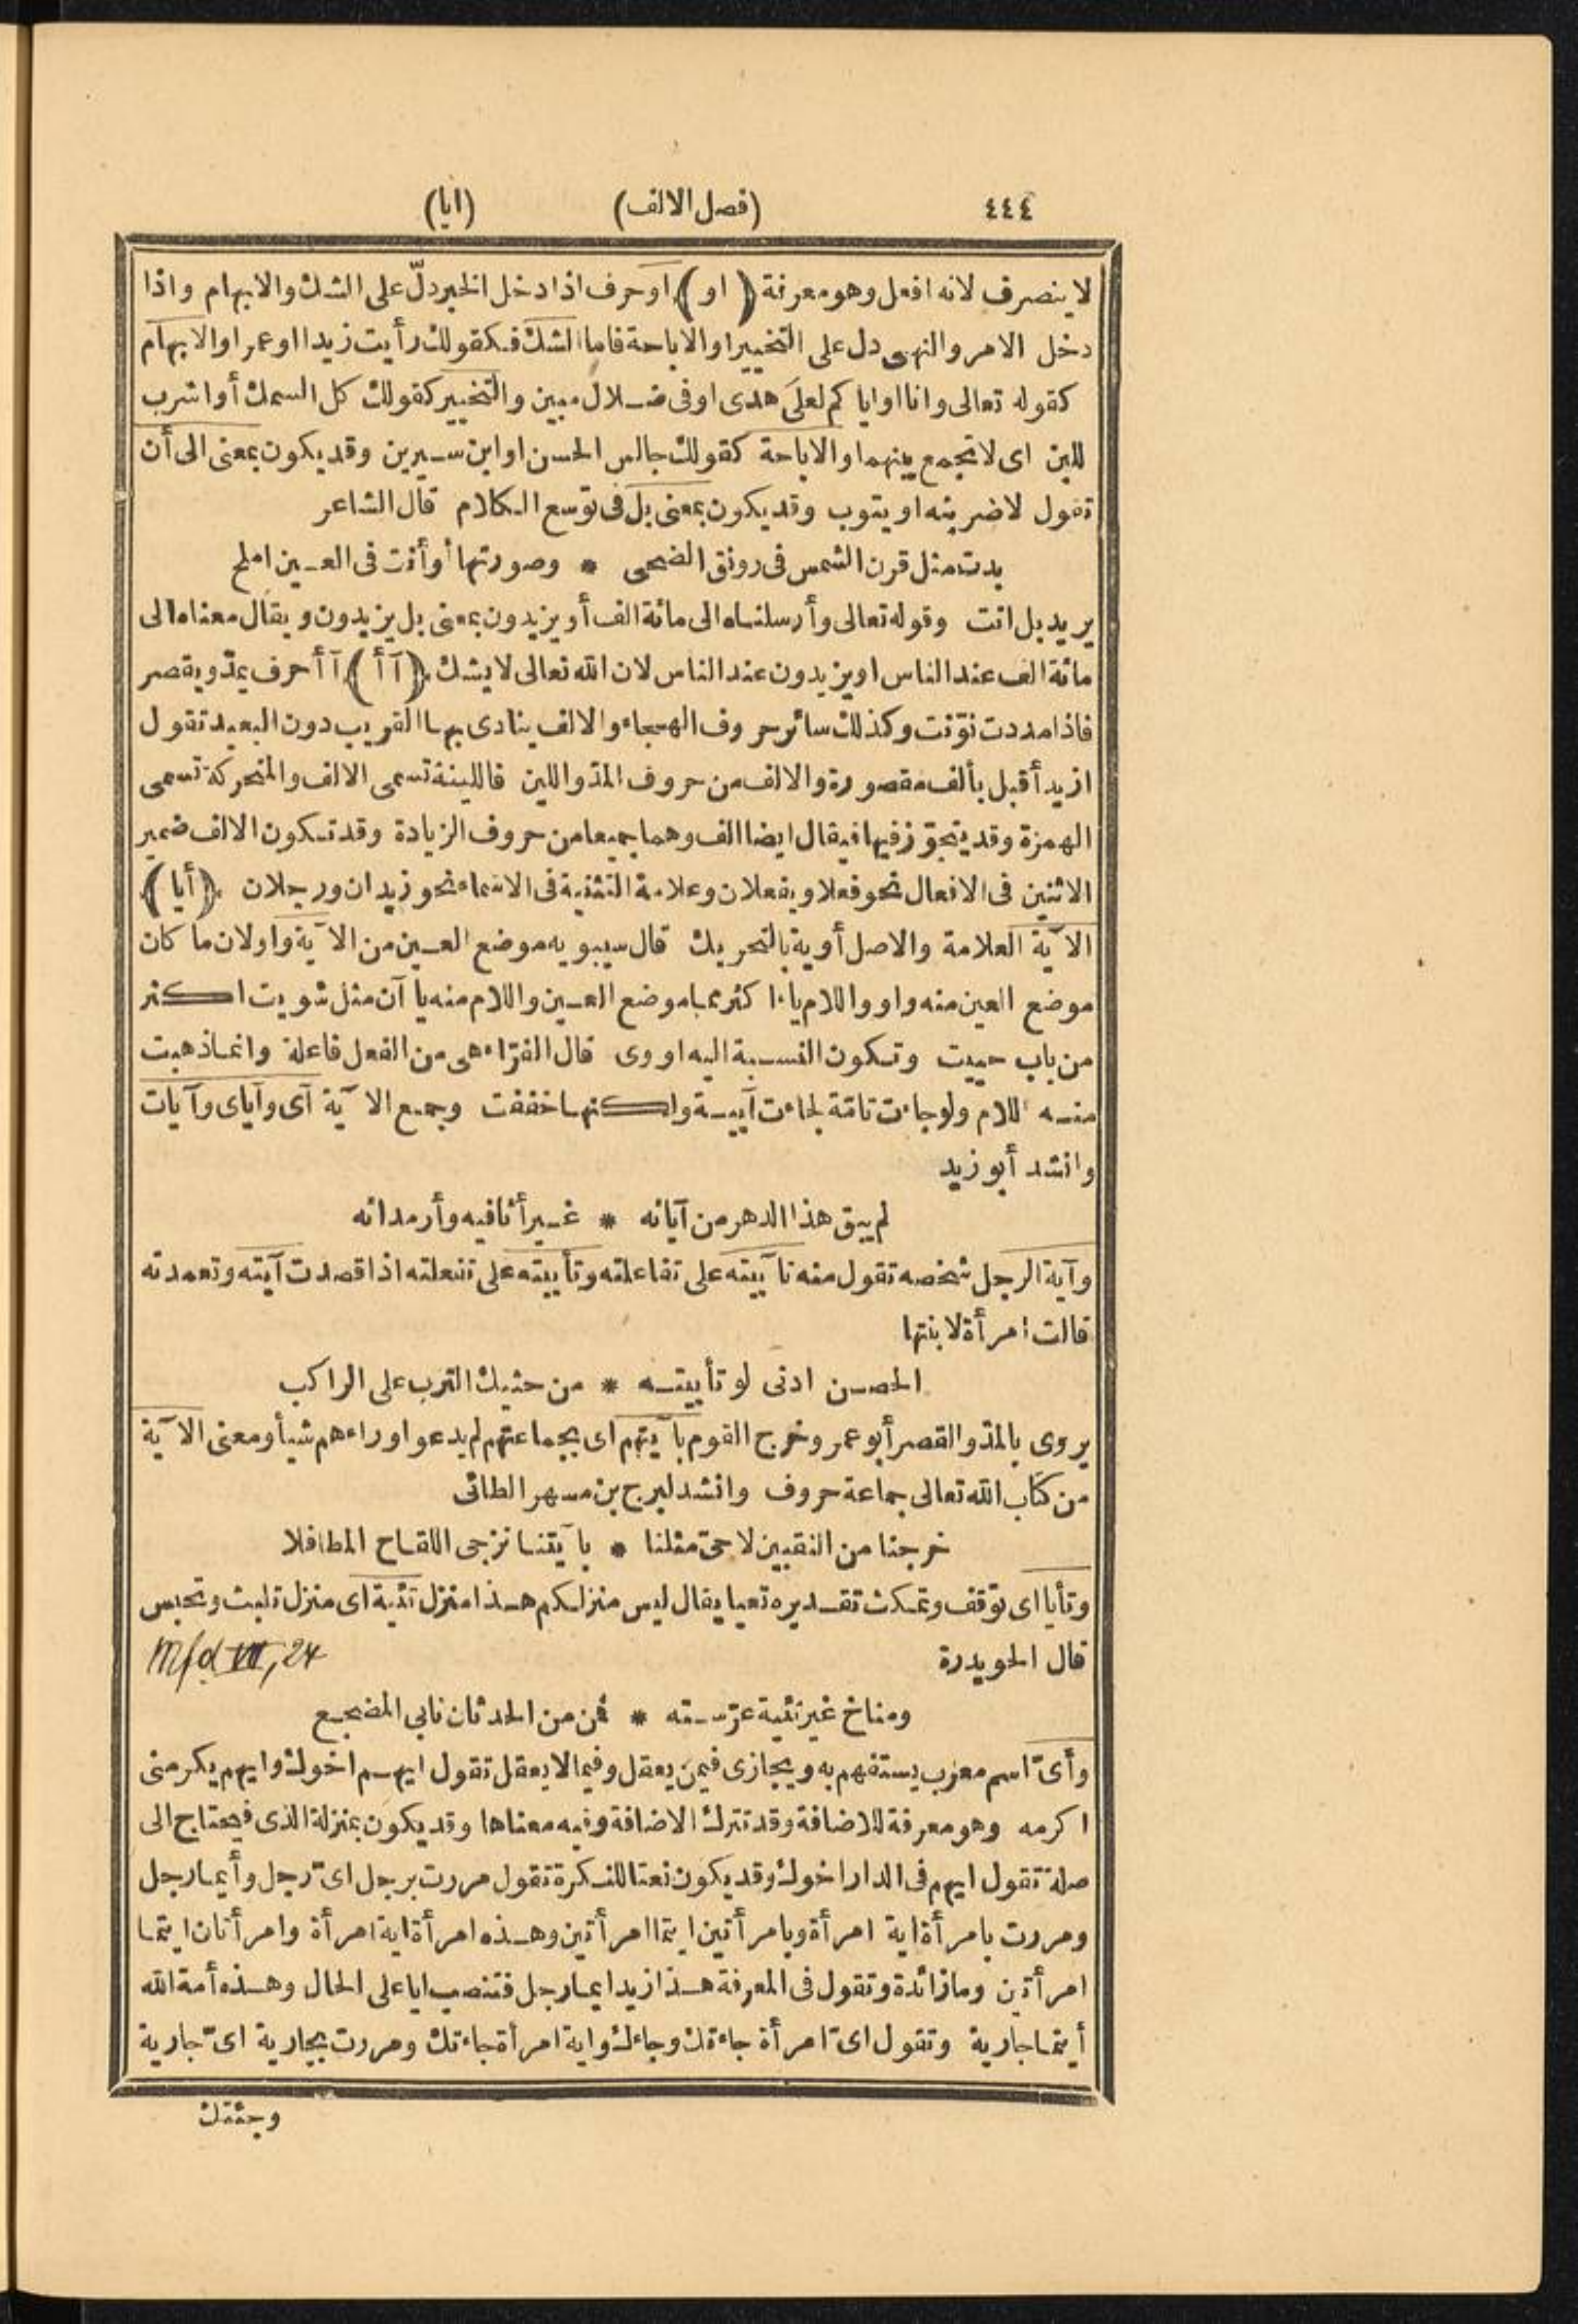 ٤٤٤ (فصل الالف) (ايا)
لا ينصرف لانه افعل وهو معرفة (او) او حرف اذا دخل الخبر دلّ على الشك والابهام واذا
دخل الامر والنهى دل على التخيير او الاباحة فاما الشك فكقولك رأيت زيدا او عمرا والابهام
كقوله تعالى وانا او اياكم لعلى هدى او فى ضلال مبين والتخيير كقولك كل السمك أو اشرب
للبن اى لا تجمع بينهما والاباحة كقولك جالس الحسن او ابن سيرين وقد يكون بمعنى الى أن
تقول لاضربنه او يتوب وقد يكون بمعنى بل فى توسع الكلام قال الشاعر
بدت مثل قرن الشمس فى رونق الضحى * وصورتها أو أنت فى العين املح
يريد بل انت وقوله تعالى وأرسلناه الى مائة الف أو يزيدون بمعنى بل يزيدون ويقال معناه الى
مائة الف عند الناس او يزيدون عند الناس لان الله تعالى لا يشك (آ أ) آ أ حرف يمدّ ويقصر
فاذا مددت نوّنت وكذلك سائر حروف الهجاء والالف ينادى بها القريب دون البعيد تقول
ازيد أقبل بألف مقصورة والالف من حروف المدّ واللين فاللينة تسمى الالف والمتحركة تسمى
الهمزة وقد يتجوّز فيها فيقال ايضا الف وهما جميعا من حروف الزيادة وقد تكون الالف ضمير
الاثنين فى الافعال نحو فعلا ويفعلان وعلامة التثنية فى الاسماء نحو زيدان ورجلان (أيا)
الآية العلامة والاصل أوية بالتحريك قال سيبويه موضع العين من الآية واو لان ما كان
موضع العين منه واو واللام ياء اكثر مما موضع العين واللام منه يا آن مثل شويت اكثر
من باب حييت وتكون النسبة اليه اووى قال الفرّاء هى من الفعل فاعلة وانما ذهبت
منه اللام ولو جاءت تامّة لجاءت آيية ولكنها خففت وجمع الآية آى وآياى وآيات
وانشد أبو زيد
لم يبق هذا الدهر من آيائه * غير أثافيه وأرمدائه
وآية الرجل شخصه تقول منه تآييته على تفاعلته وتأييته على تفعلته اذا قصدت آيته وتعمدته
قالت امرأة لابنتها
الحصن ادنى لو تأييته * من حثيك الترب على الراكب
يروى بالمدّ والقصر أبو عمر وخرج القوم بآيتهم اى بجماعتهم لم يدعوا وراءهم شيأ ومعنى الآية
من كتاب الله تعالى جماعة حروف وانشد لبرج بن مسهر الطائى
خرجنا من النقبين لا حىّ مثلنا * بآيتنا نزجى اللقاح المطافلا
وتأيا اى توقف وتمكث تقديره تعيا يقال ليس منزلكم هذا منزل تئية اى منزل تلبث وتحبس
قال الحويدرة Mfḍ VII, 24
ومناخ غير تئية عرّسته * قمن من الحدثان نابي المضجع
وأىّ اسم معرب يستفهم به ويجازى فيمن يعقل وفيما لا يعقل تقول ايهم اخوك وايهم يكرمنى
اكرمه وهو معرفة للاضافة وقد تترك الاضافة وفيه معناها وقد يكون بمنزلة الذى فيحتاج الى
صلة تقول ايهم فى الدار اخوك وقد يكون نعتا للنكرة تقول مررت برجل اىّ رجل وأيما رجل
ومررت بامرأة اية امرأة وبامرأتين ايتما امرأتين وهذه امرأة اية امرأة وامرأتان ايتما
امرأتين وما زائدة وتقول فى المعرفة هذا زيد ايما رجل فتنصب ايا على الحال وهذه أمة الله
أيتما جارية وتقول اىّ امرأة جاءتك وجاءك واية امرأة جاءتك ومررت بجارية اىّ جارية
وجئتك